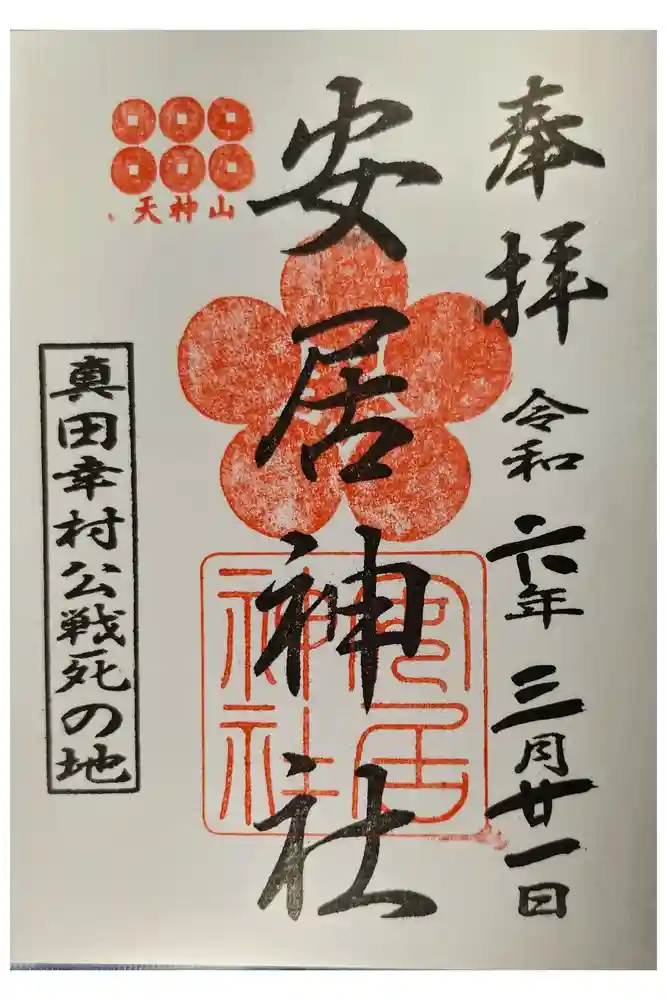 奉拝
令和六年三月廿一日
安居神社
安居
神社
天神山
真田幸村公戦死の地